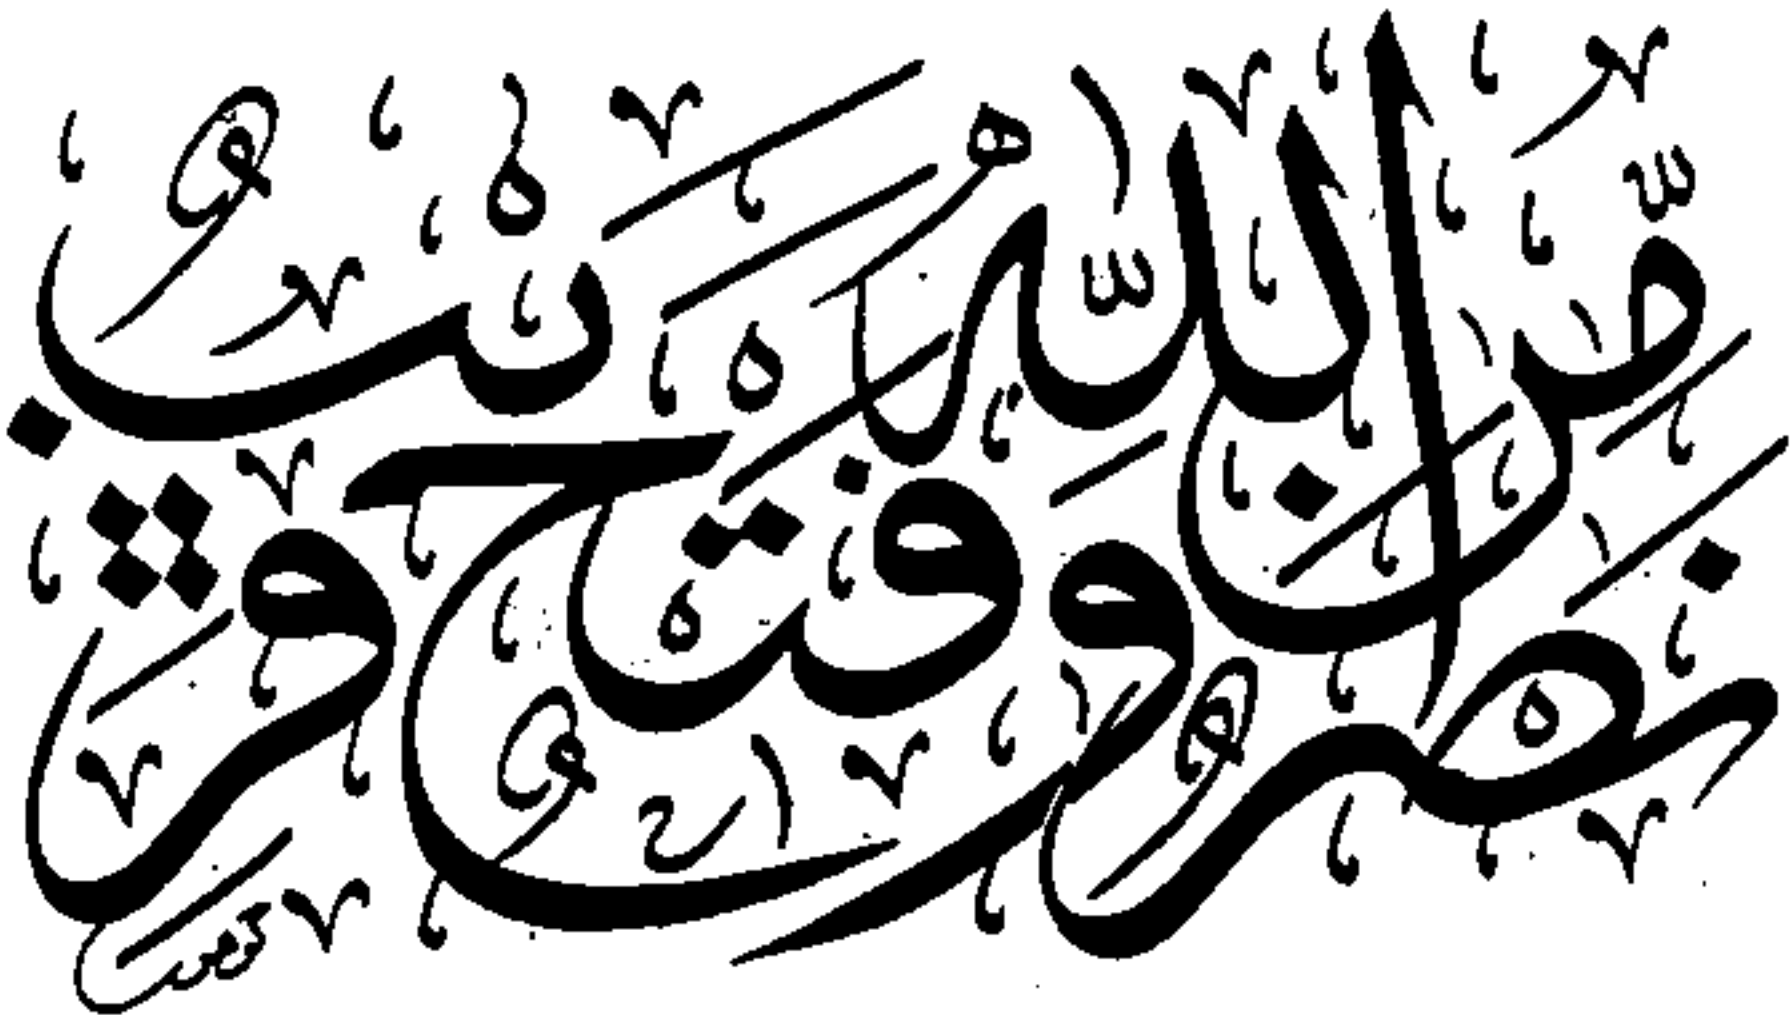 نَصْرٌ مِّنَ اللَّهِ وَفَتْحٌ قَرِيبٌ